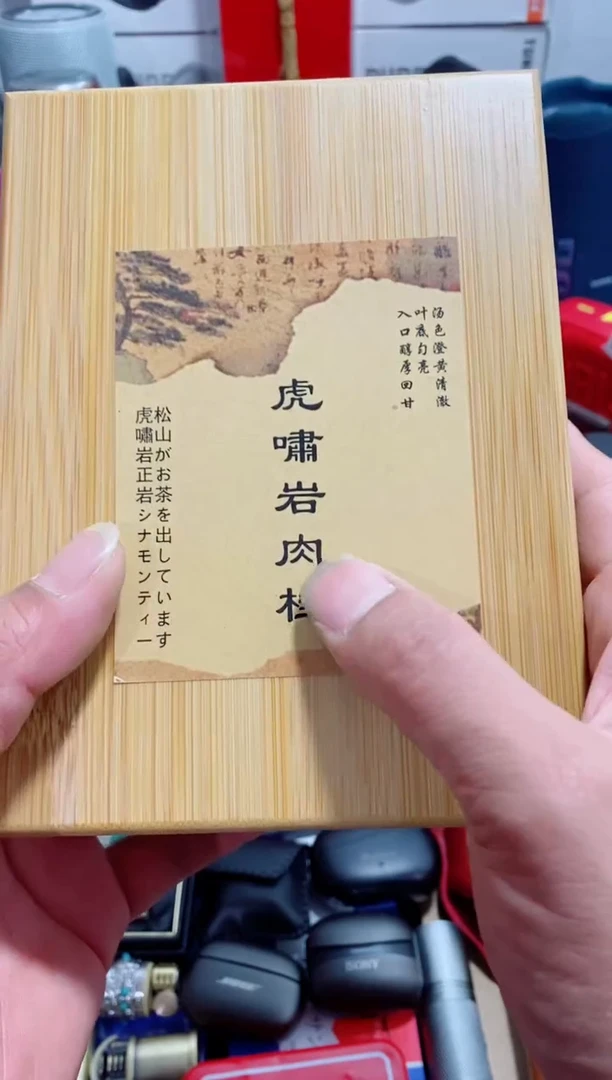 汤色澄黄清澈
叶底匀亮
入口醇厚回甘
虎嘯岩肉桂
松山がお茶を出しています
虎嘯岩正岩シナモンティー
BOSE
SONY